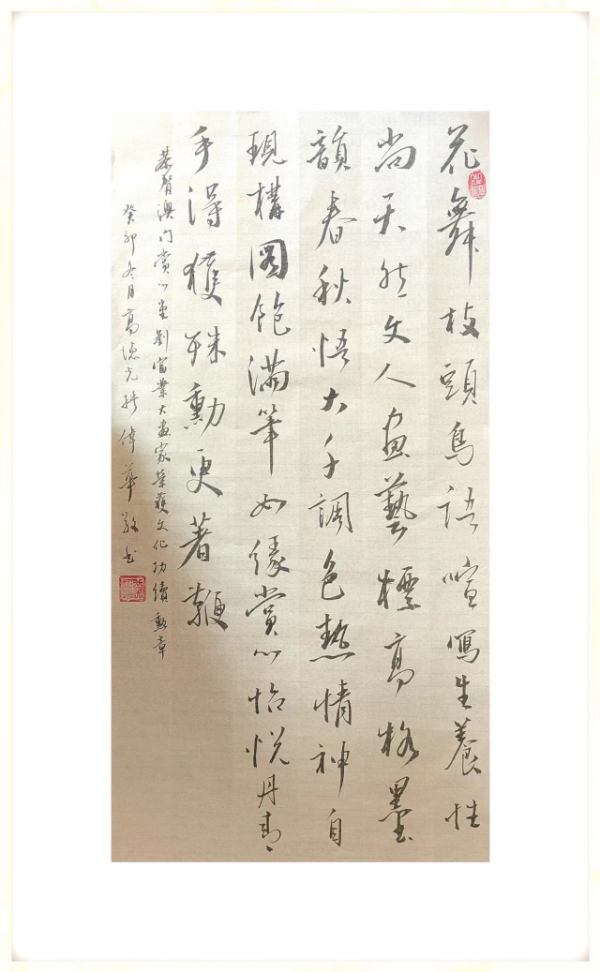 花舞枝頭鳥語喧寫生養性
尚天然文人畫藝標高格墨
韻春秋悟大千調色熱情神自
現構圖飽滿筆如緣賞心怡悅丹青
手得獲殊勳更著鞭
恭賀澳门賞心堂劉富業大畫家榮獲文化功績勳章
癸卯冬月高德光撰偉華敬书